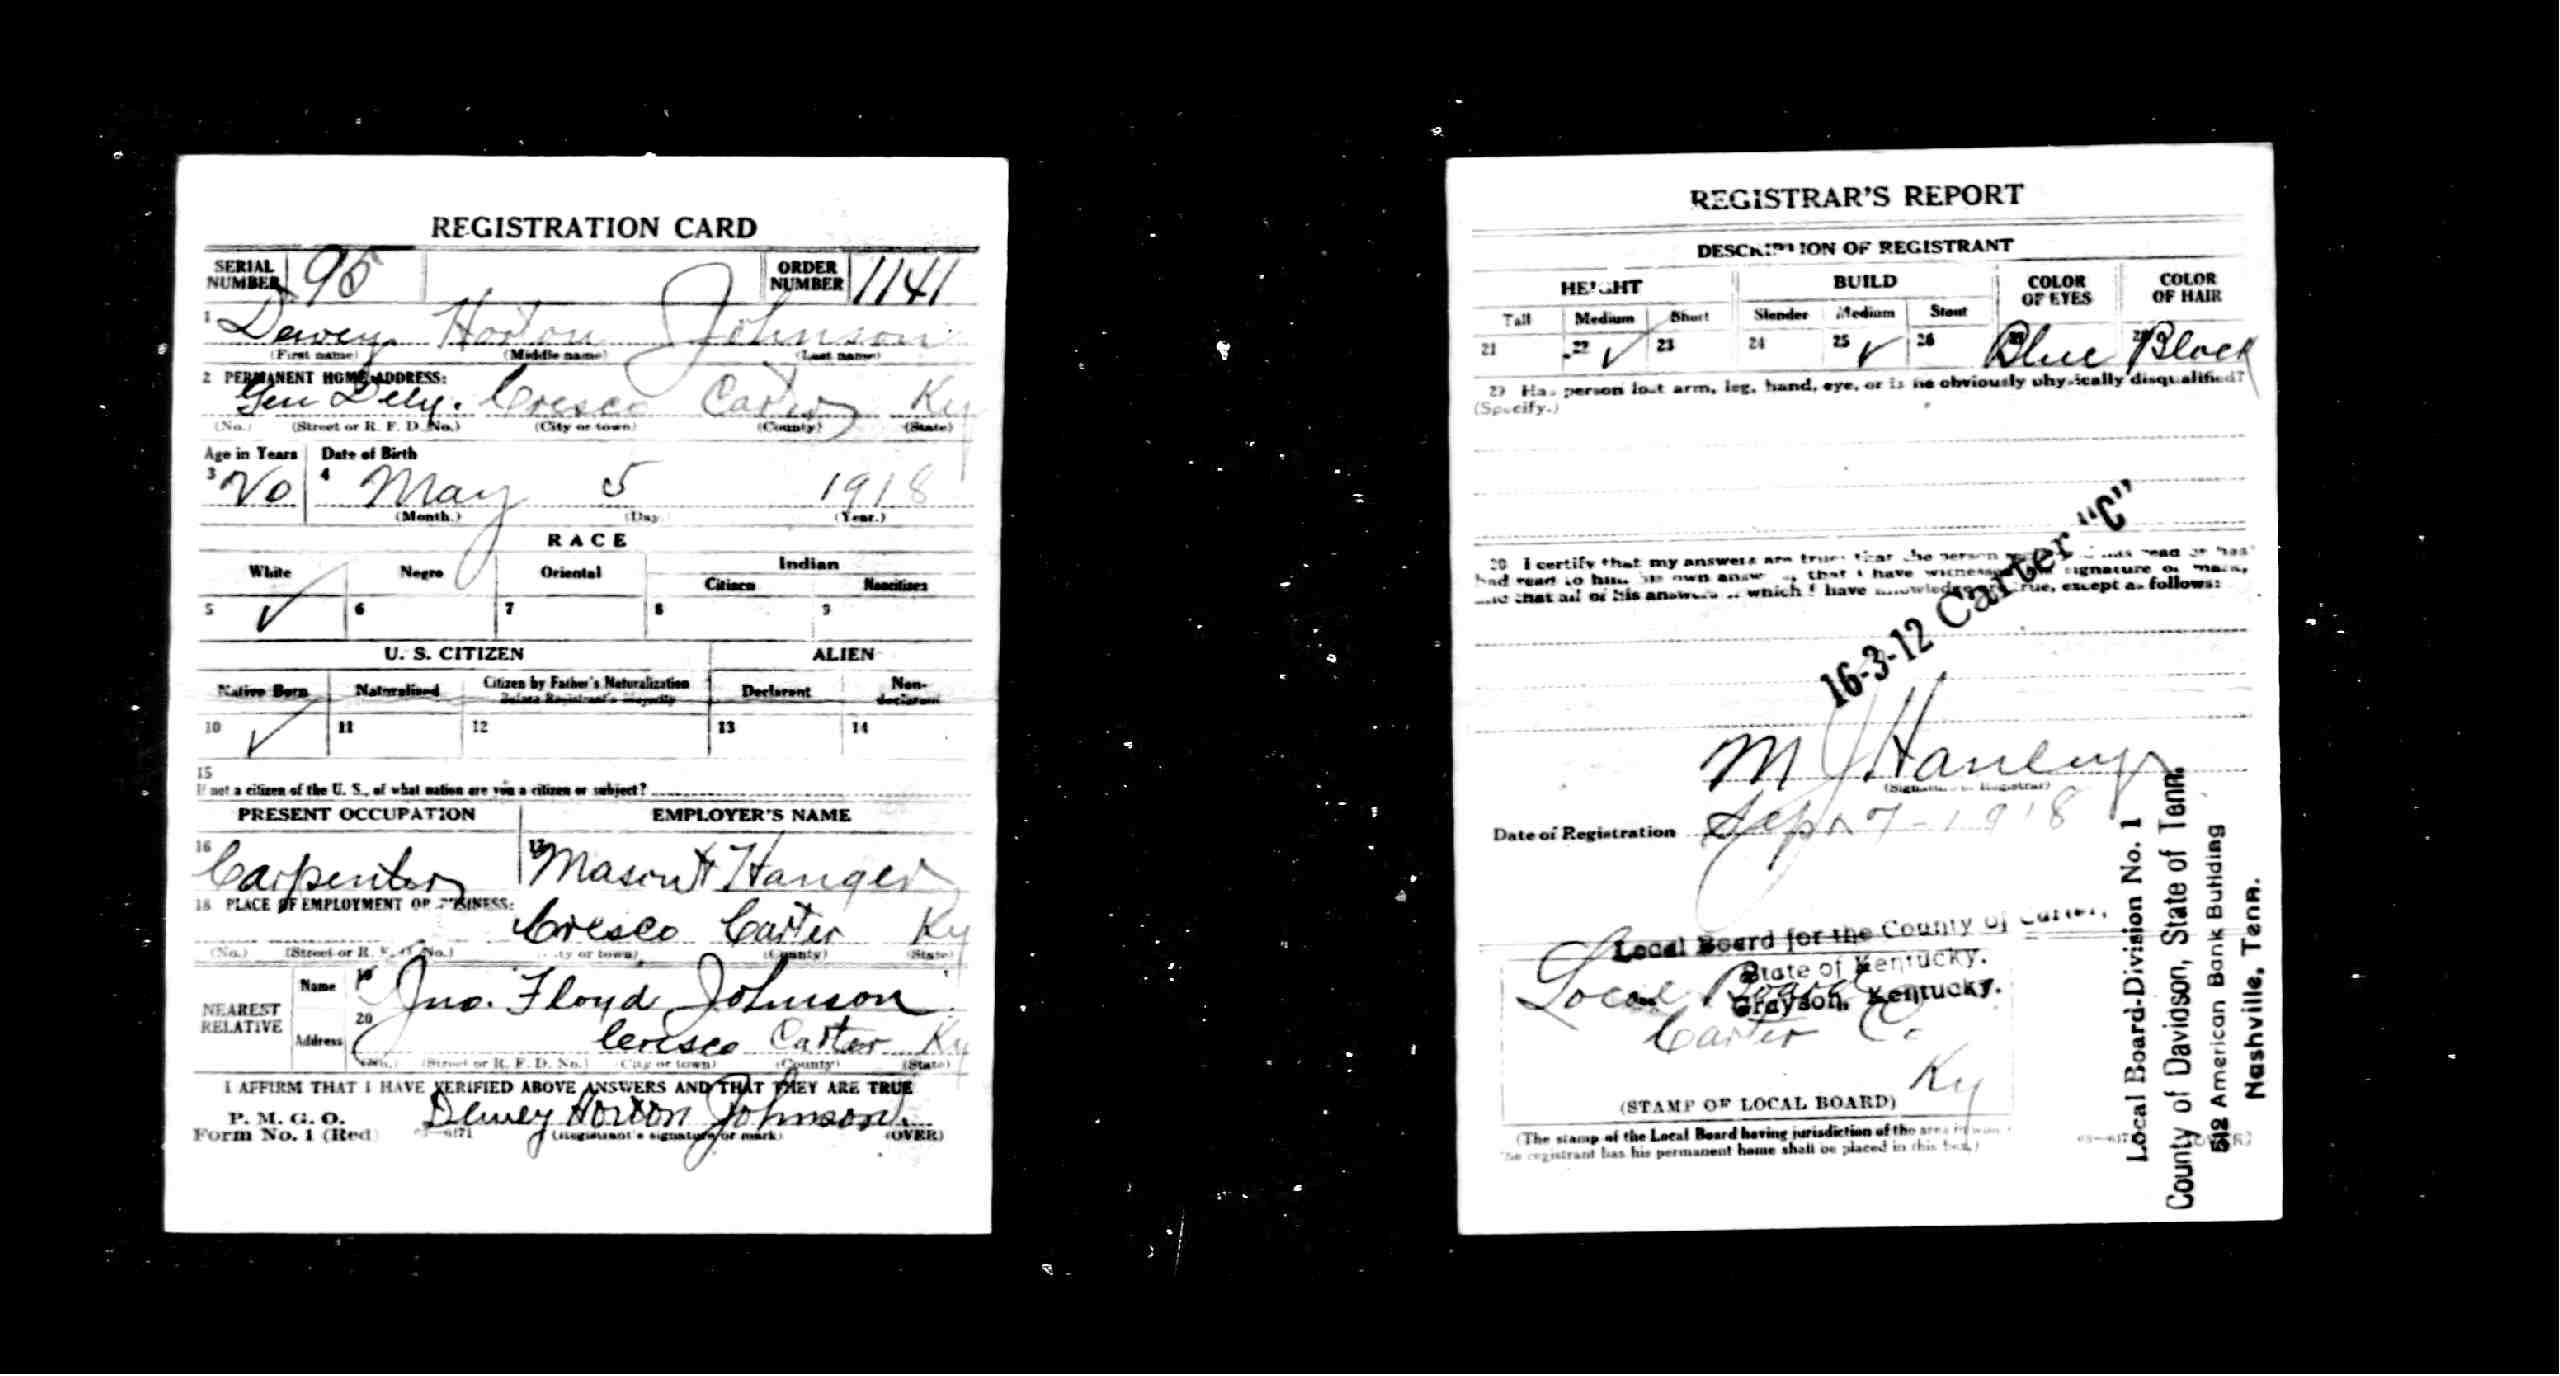 REGISTRATION CARD
SERIAL NUMBER 95 ORDER NUMBER 1141
1 Dewey Horton Johnson
(First name) (Middle name) (Last name)
2 PERMANENT HOME ADDRESS:
Gen Dely. Cresco Carter Ky
(No.) (Street or R. F. D. No.) (City or town) (County) (State)
Age in Years Date of Birth
3 20 4 May 5 1918
(Month.) (Day.) (Year.)
RACE
White Negro Oriental Indian
Citizen Noncitizen
5 ✓ 6 7 8 9
U. S. CITIZEN ALIEN
Native Born Naturalized Citizen by Father's Naturalization Before Registrant's Majority Declarant Non-declarant
10 ✓ 11 12 13 14
15
If not a citizen of the U. S., of what nation are you a citizen or subject?
PRESENT OCCUPATION EMPLOYER'S NAME
16 Carpenter 17 Mason & Hanger
18 PLACE OF EMPLOYMENT OR BUSINESS:
Cresco Carter Ky
(No.) (Street or R. F. D. No.) (City or town) (County) (State)
NEAREST RELATIVE
Name 19 Jno. Floyd Johnson
Address 20 Cerisco Carter Ky
(No.) (Street or R. F. D. No.) (City or town) (County) (State)
I AFFIRM THAT I HAVE VERIFIED ABOVE ANSWERS AND THAT THEY ARE TRUE
P. M. G. O.
Form No. 1 (Red) Dewey Horton Johnson
(Registrant's signature or mark) (OVER)
REGISTRAR'S REPORT
DESCRIPTION OF REGISTRANT
HEIGHT BUILD COLOR OF EYES COLOR OF HAIR
Tall Medium Short Slender Medium Stout
21 22 ✓ 23 24 25 ✓ 26 Blue Black
29 Has person lost arm, leg, hand, eye, or is he obviously physically disqualified?
(Specify.)
30 I certify that my answers are true; that the person has read or has
had read to him his own answers; that I have witnessed his signature or mark,
and that all of his answers of which I have knowledge are true, except as follows:
16-3-12 Carter "C"
M J Haney
(Signature of Registrar)
Date of Registration Sept 7-1918
Local Board for the County of Carter,
State of Kentucky.
Grayson, Kentucky.
Local Board
Carter Co
Ky
(STAMP OF LOCAL BOARD)
(The stamp of the Local Board having jurisdiction of the area in which
the registrant has his permanent home shall be placed in this box.)
(OVER)
Local Board-Division No. 1
County of Davidson, State of Tenn.
512 American Bank Building
Nashville, Tenn.